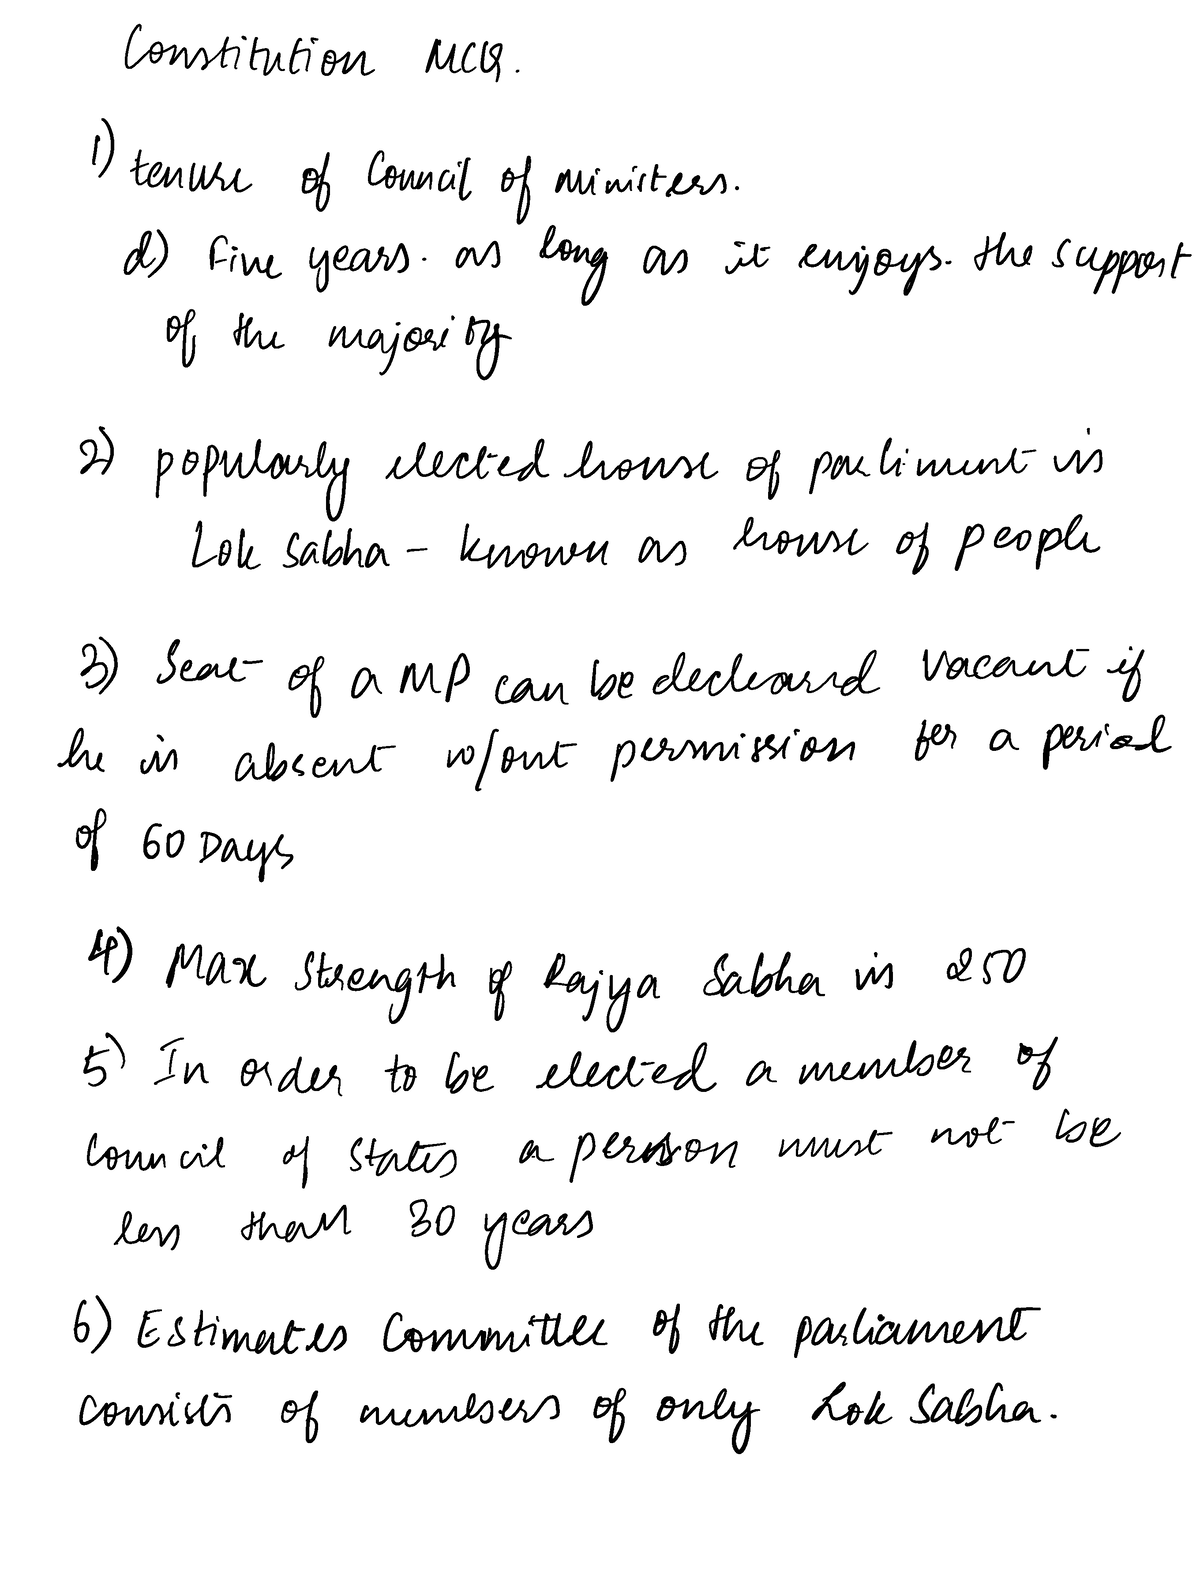 Constitution MCQ.
1) tenure of Council of Ministers.
d) Five years. as long as it enjoys. the support
of the majority
2) popularly elected house of parliment is
Lok Sabha - known as house of people
3) Seat of a MP can be decleared vacant if
he is absent w/out permission for a period
of 60 Days
4) Max Strength of Rajya Sabha is 250
5) In order to be elected a member of
Council of States a person must not be
less than 30 years
6) Estimates Committee of the parliament
consists of members of only Lok Sabha.